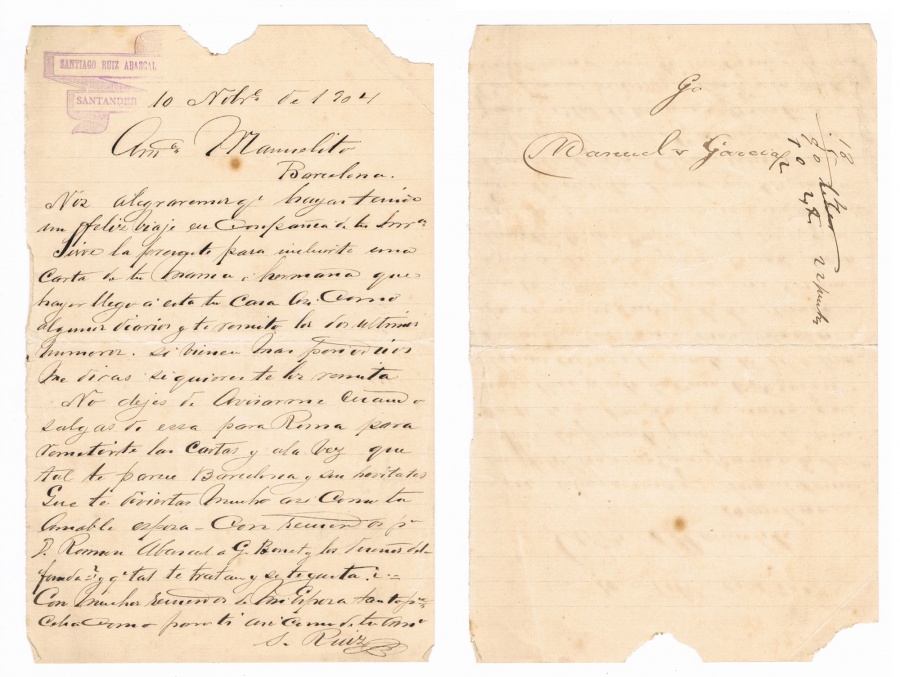 SANTIAGO RUIZ ABASCAL
SANTANDER
10 Nobre de 1904
Amo Manuelito
Barcelona.
Nos alegraremos qe hayas tenido
un feliz viaje en Compañia de tu
Sirve la presente para incluirte una
Carta de tu mama i hermana que
hayer llego a esta tu Casa asi Como
algunos diarios y te remito los dos ultimos
numeros. Si vienen mas periodicos
me diras si quieres te los remita
No dejes de avisarme cuando
salgas de essa para Roma para
remitirte las Cartas y a la vez que
tal te parece Barcelona y sus
Que te diviertas mucho asi Como tu
amable esposa - Con recuerdos pa
D. Ramon Abascal a G. Bonet y los dueños del
fonda y qe tal te tratan y si te gusta
Con muchos recuerdos de mi Esposa tanto pa
Como para ti asi Como de tu amo
S. Ruiz
Manuel Garcia
18
22 puntos